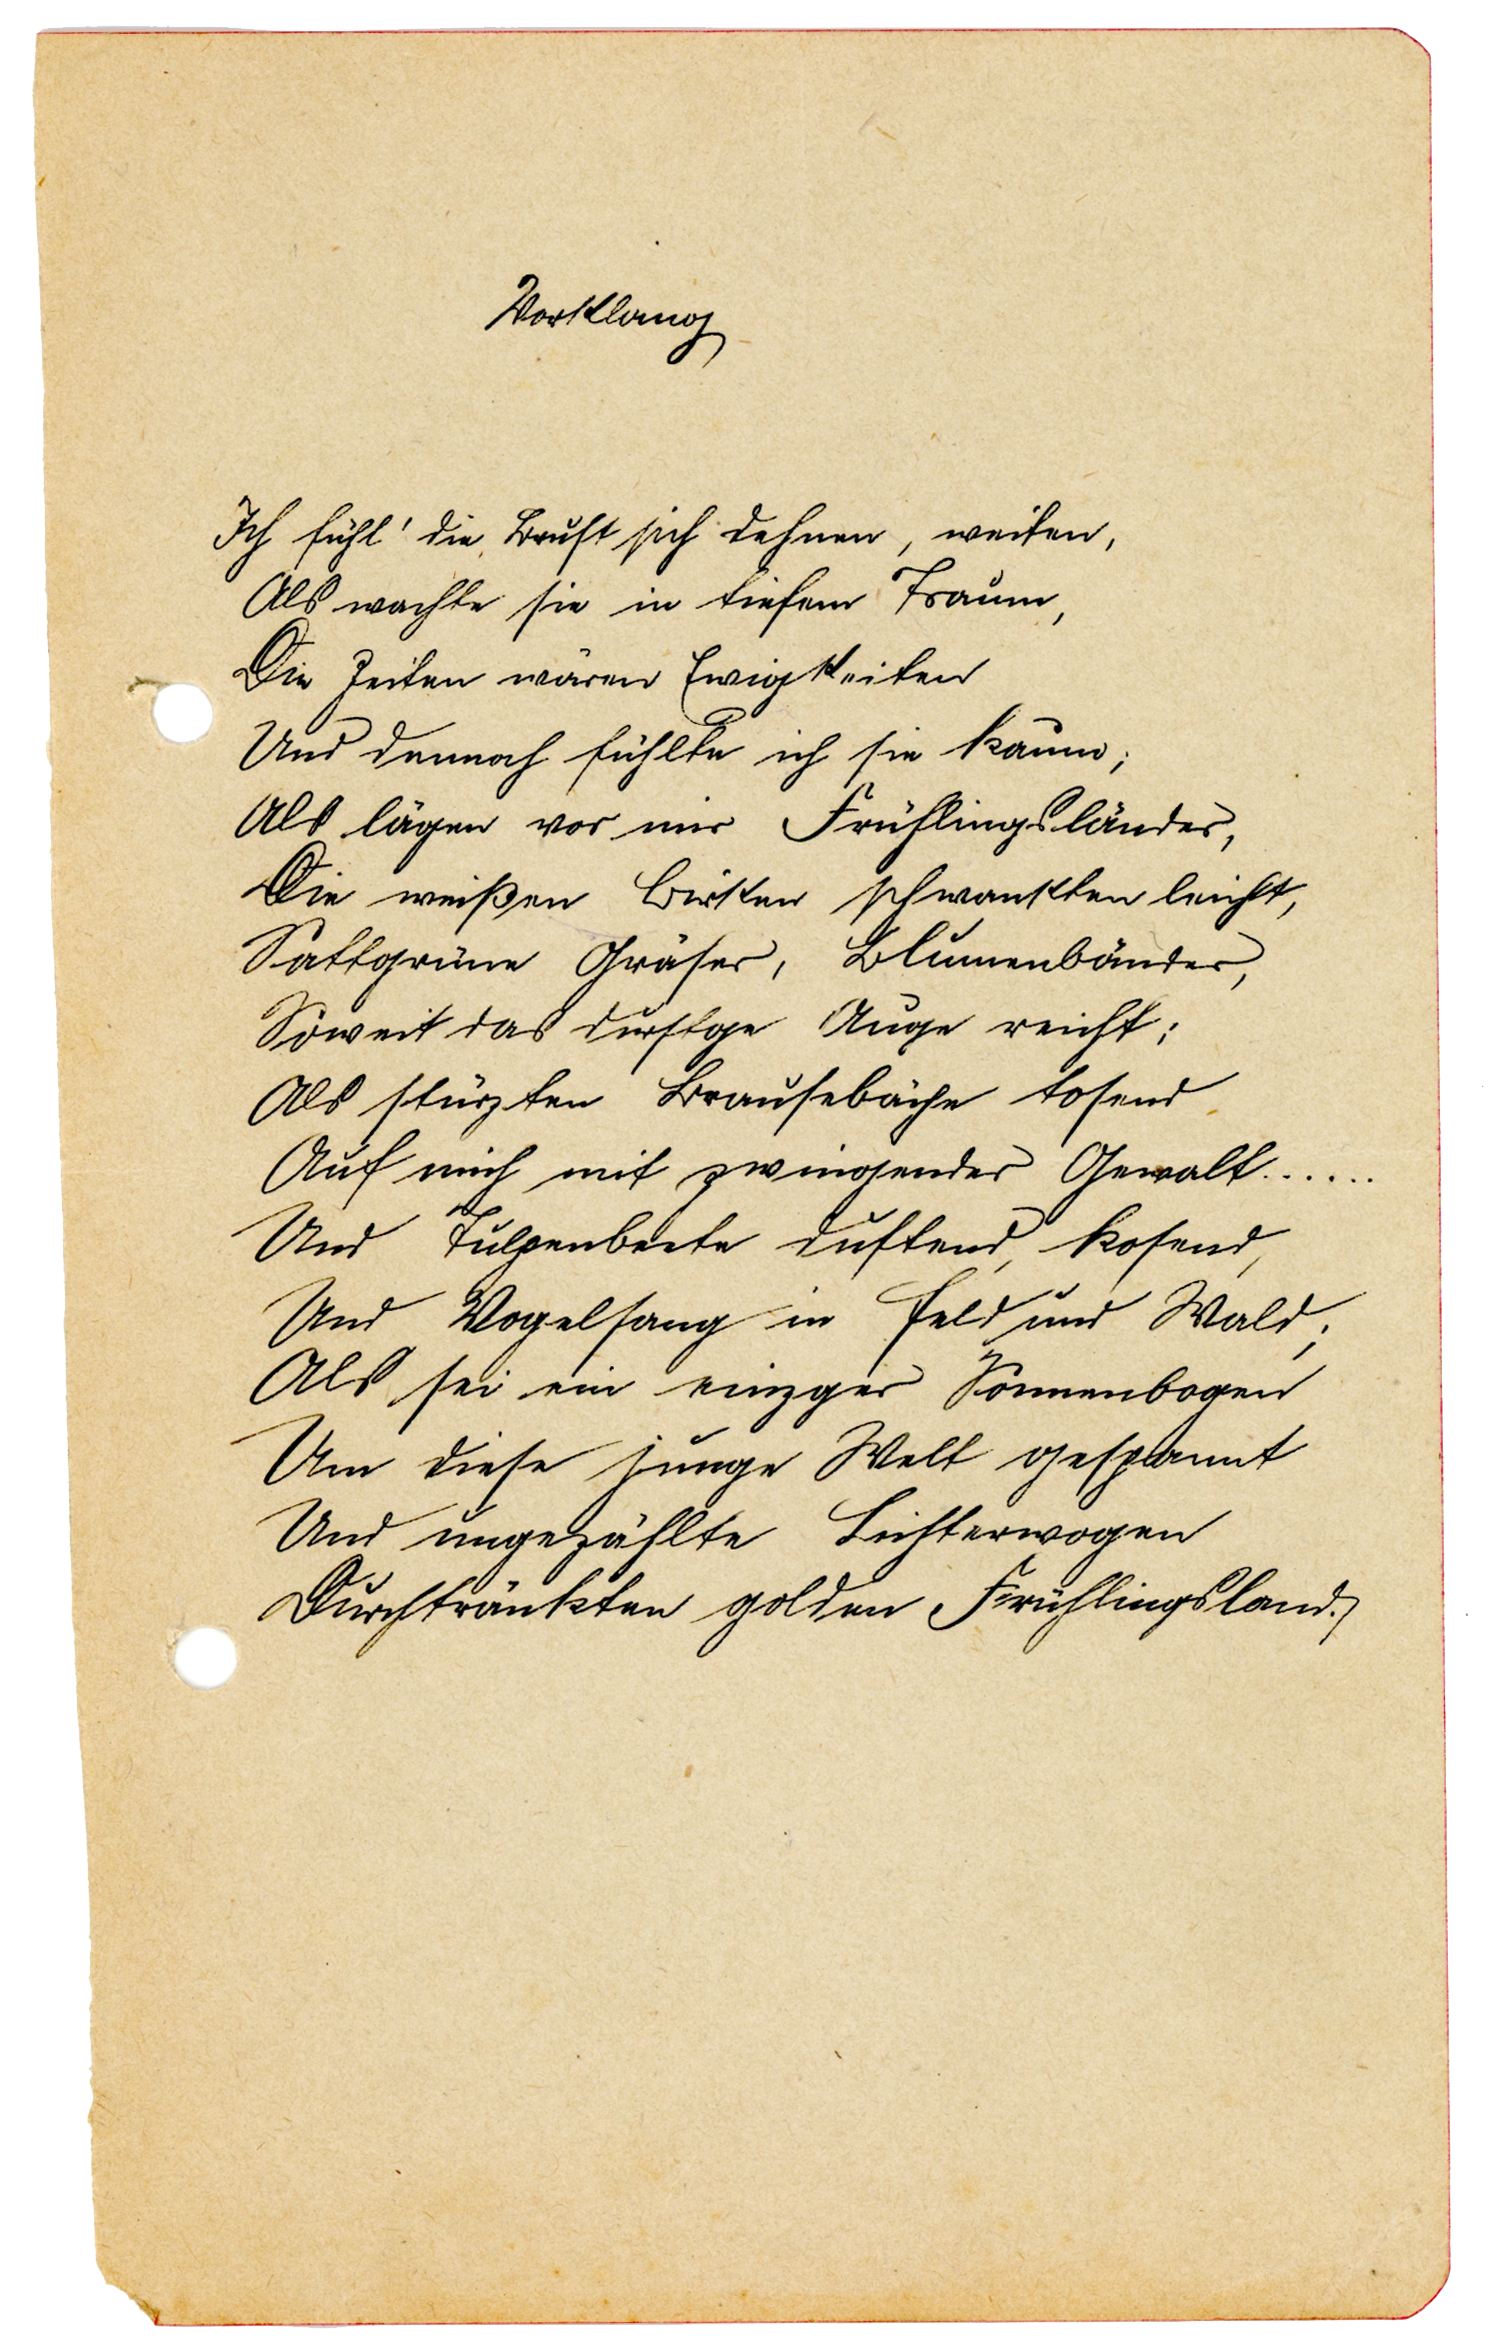 Vorklang
Ich fühl' die Brust sich dehnen, weiten,
Als wachte sie in tiefem Traum,
Die Zeiten wären Ewigkeiten
Und dennoch fühlte ich sie kaum;
Als lägen vor mir Frühlingsländer,
Die weißen Birken schwankten leicht,
Sattgrüne Gräser, Blumenbänder,
Soweit das durstge Auge reicht;
Als stürzten Brausebäche tosend
Auf mich mit zwingender Gewalt......
Und Tulpenbeete duftend, kosend,
Und Vogelsang in Feld und Wald;
Als sei ein einzger Sonnenbogen
Um diese junge Welt gespannt
Und ungezählte Lichterwogen
Durchtränkten golden Frühlingsland.